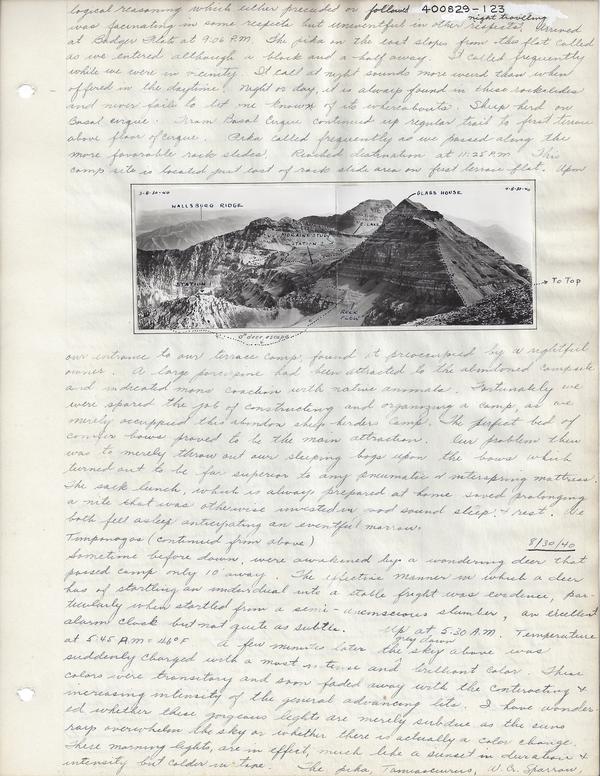 logical reasoning which either preceded or follows 400829-123
night traveling
was facinating in some respects but uneventful in other respects. Arrived
at Badger Flats at 9:06 P.M. The pika on the east slopes from this flat called
as we entered although a block and a half away. I called frequently
while we were in vicinity. It call at night sounds more weird than when
offered in the daytime. Night or day, it is always found in these rockslides
and never fails to let one known of its whereabouts. Sheep herd on
Basal cirque. From Basal Cirque continued up regular trail to first terrace
above floor of cirque. Pika called frequently as we passed along the
more favorable rock slides. Reached destination at 11:25 P.M. This
camp site is located just east of rock slide area on first terrace flat. Upon
9-8-30-40
WALLSBURG RIDGE
GLASS HOUSE
9-8-30-40
E-LAKE
MORAINE STUDY
STATION 2
STATION
ROCK
FLOW
To Top
deer escape
our entrance to our terrace camp, found it preoccupied by a rightful
owner. A large porcupine had been attracted to the abandoned campsite
and indicated mans coaction with native animals. Fortunately we
were spared the job of constructing and organizing a camp, as we
merely occuppied this abandon sheep herders camp. The perfect bed of
conifer bows proved to be the main attraction. Our problem then
was to merely throw out our sleeping bags upon the bows which
turned out to be far superior to any pneumatic or interspring mattress.
The sack lunch, which is always prepared at home saved prolonging
a nite that was otherwise invested in sound sleep & rest. We
both feel asleep anticipating an eventful marrow.
Timponogos (continued from above) 8/30/40
Sometime before dawn, were awakened by a wondering deer that
passed camp only 10 away. The effective manner in which a deer
has of startling an undividual into a stable fright was evidence, par-
ticularly when startled from a semi-unconscious slumber, an excellent
alarm clock but not quite as subtle. Up at 5:30 A.M. Temperature
at 5:45 A.M = 46°F A few minutes later the sky above was
suddenly charged with a most intense and brilliant color. These
colors were transitory and soon faded away with the contrasting &
increasing intensity of the general advancing lite. I have wonder-
ed whether these gorgeous lights are merely subdue as the suns
rays overwhelm the sky or whether there is actually a color change.
These morning lights, are in effect, much like a sunset in duration &
intensity but colder in tone. The pika, Tamiasciurus, W.C. Sparrow,